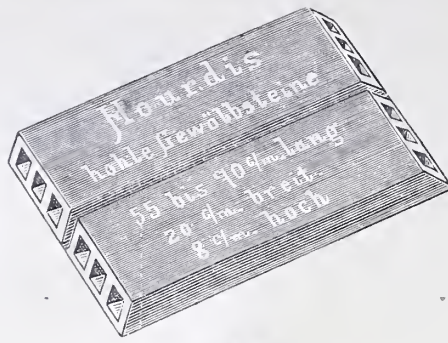 Hourdis
hohle Gewölbsteine
55 bis 90 c/m. lang
20 c/m. breit.
8 c/m. hoch